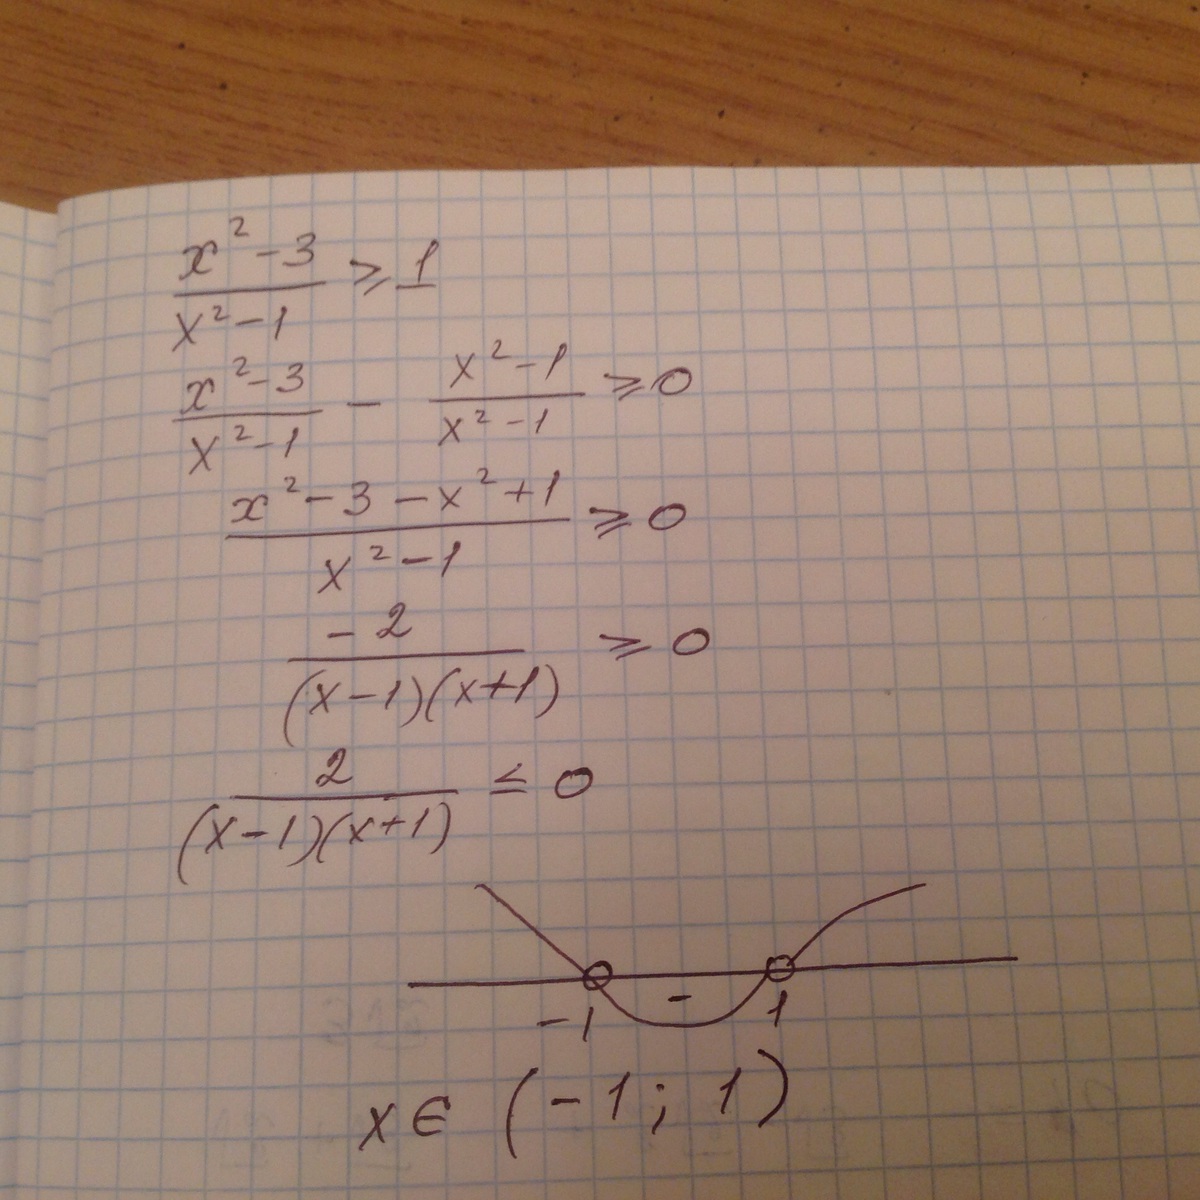 x²-3 / x²-1 ⩾ 1
x²-3 / x²-1 - x²-1 / x²-1 ⩾ 0
x²-3-x²+1 / x²-1 ⩾ 0
-2 / (x-1)(x+1) ⩾ 0
2 / (x-1)(x+1) ≤ 0
-1 - 1
x∈ (-1; 1)